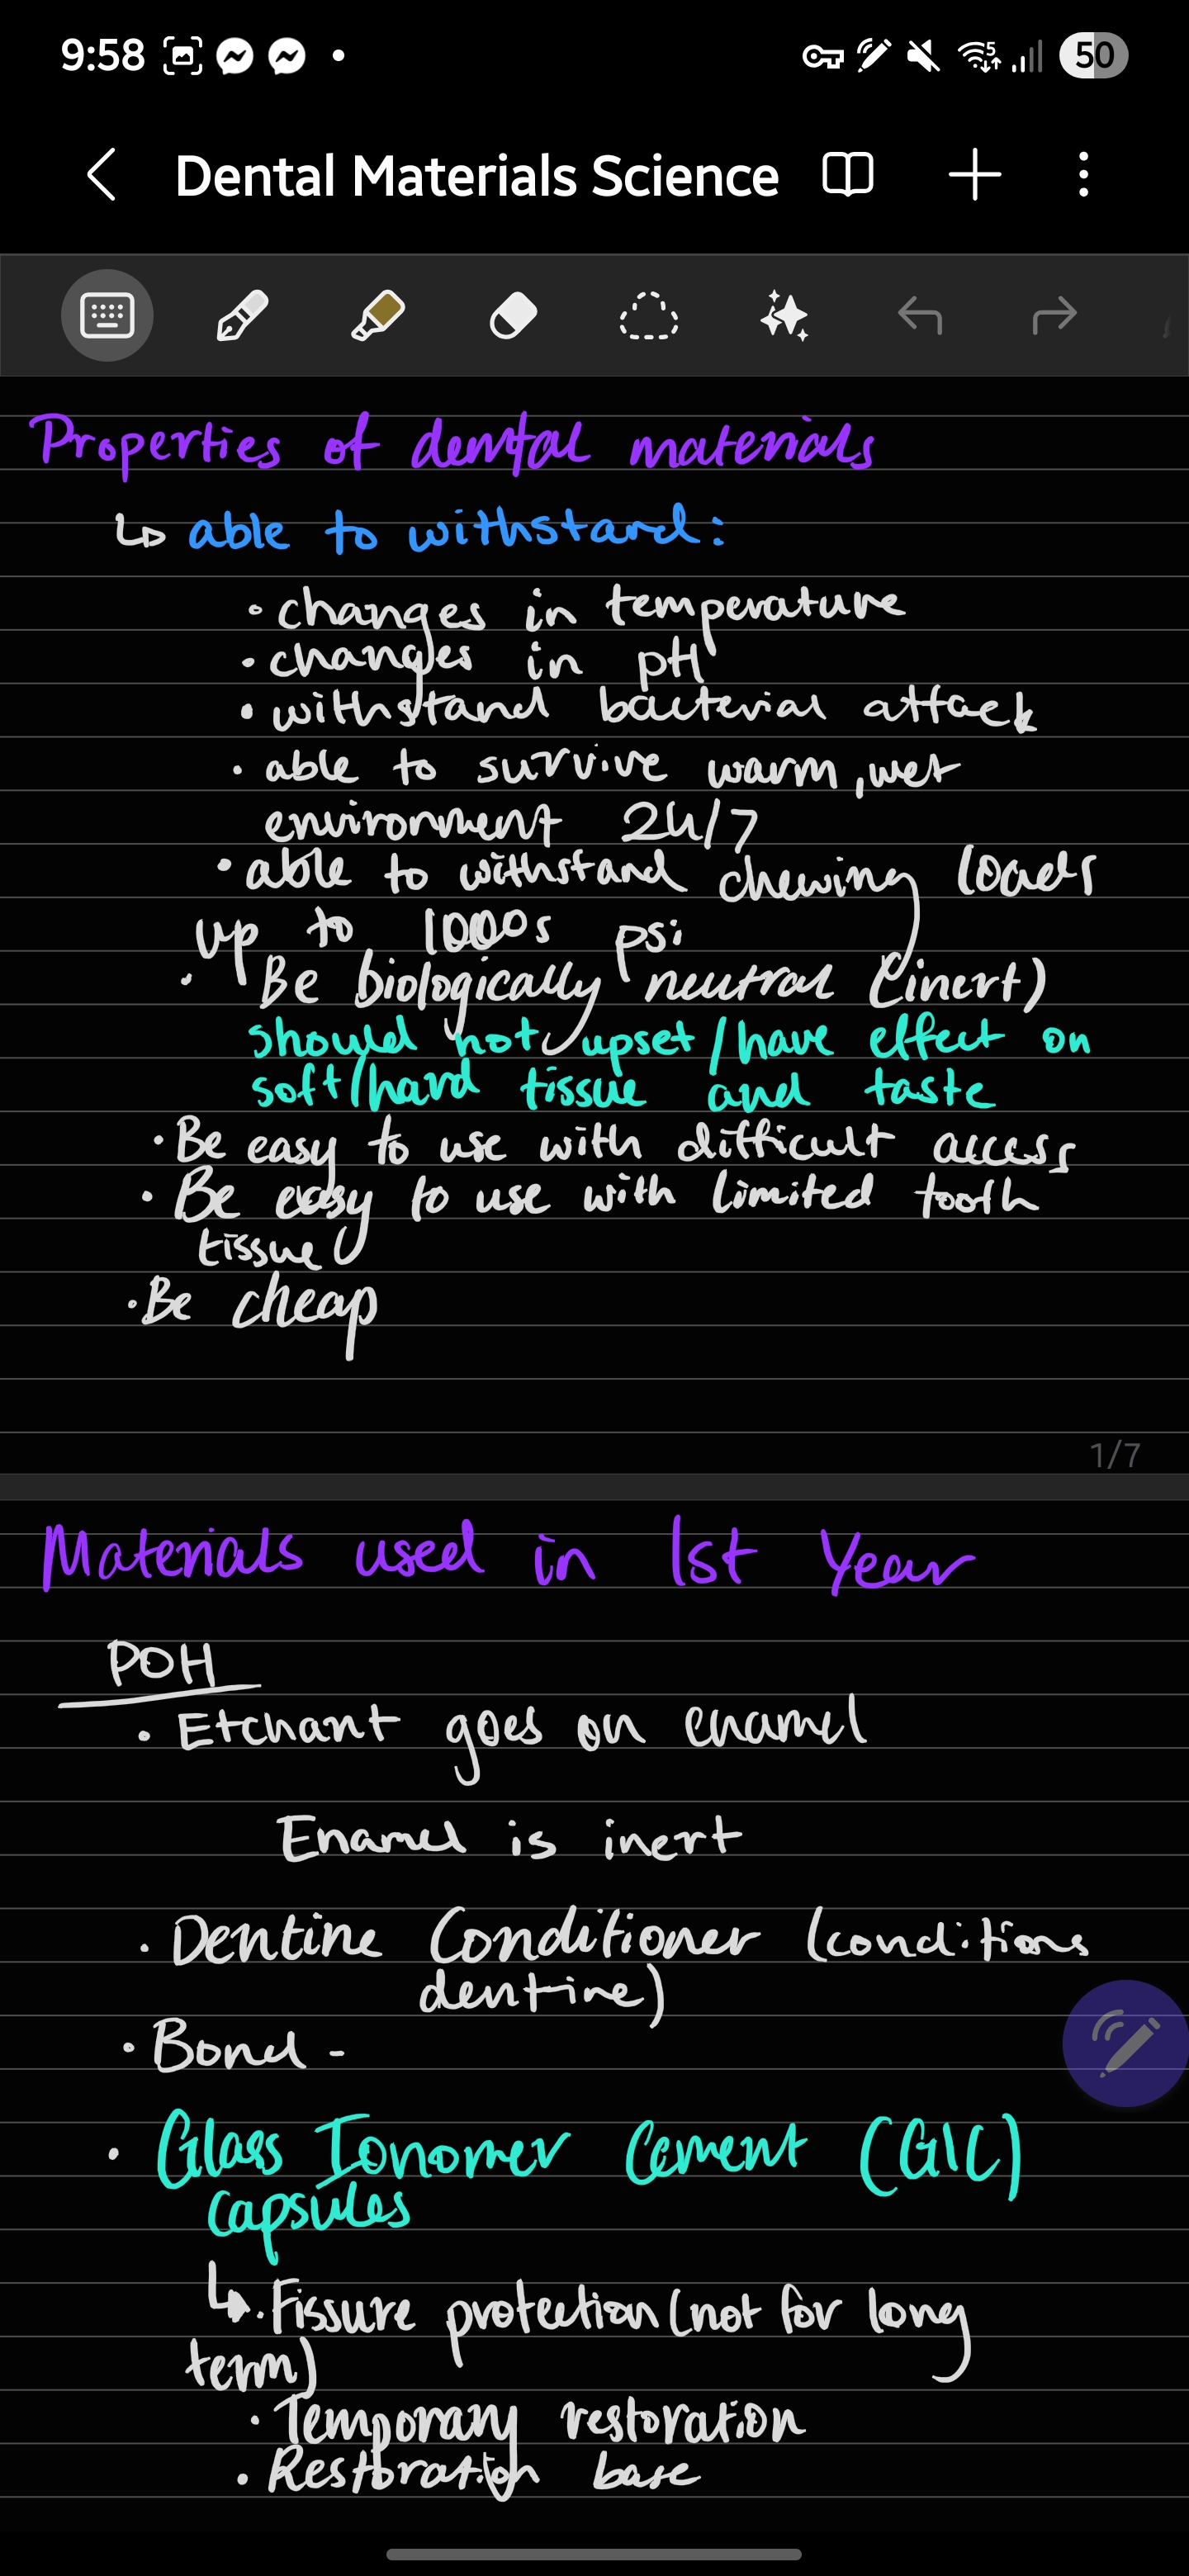 9:58
5
50
Dental Materials Science
Properties of dental materials
↳ able to withstand:
• changes in temperature
• changes in pH
• withstand bacterial attack
• able to survive warm, wet
environment 24/7
• able to withstand chewing loads
up to 1000s psi
• Be biologically neutral (inert)
should not upset/have effect on
soft/hard tissue and taste
• Be easy to use with difficult access
• Be easy to use with limited tooth
tissue
• Be cheap
1/7
Materials used in 1st Year
POH
• Etchant goes on enamel
Enamel is inert
• Dentine Conditioner (conditions
dentine)
• Bond -
• Glass Ionomer Cement (GIC)
capsules
↳ • Fissure protection (not for long
term)
• Temporary restoration
• Restoration base